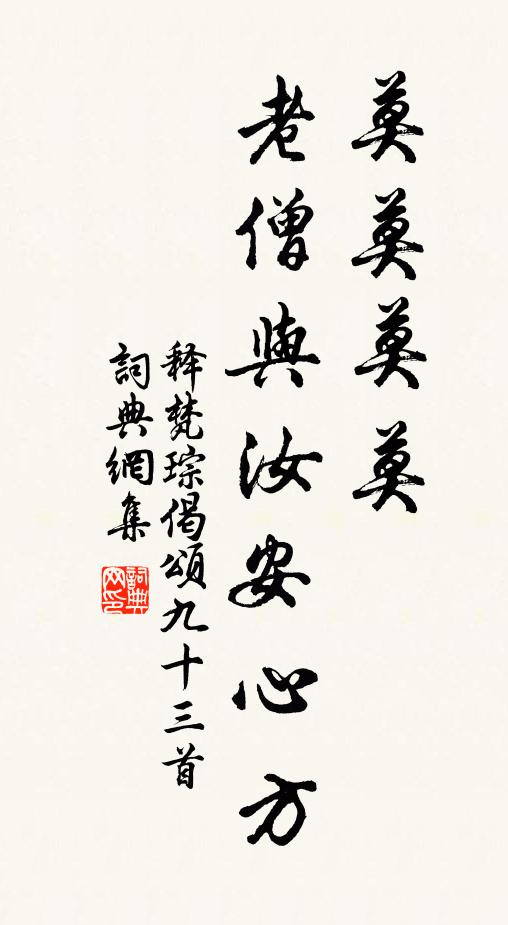 莫莫莫莫
老僧與汝安心方
释梵琮偈頌九十三首
詞典網集
詞典
网印